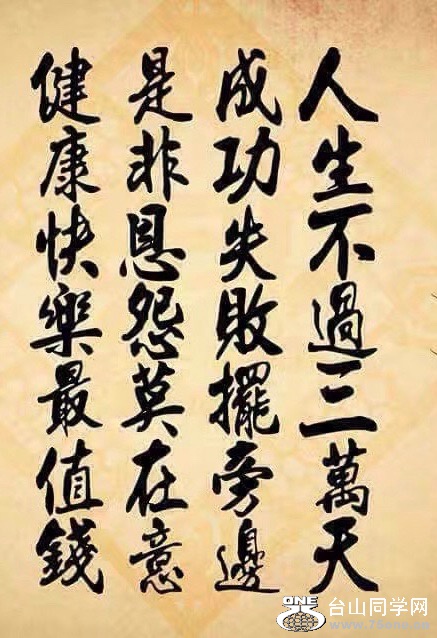 人生不過三萬天
成功失敗擺旁邊
是非恩怨莫在意
健康快樂最值錢
ONE
台山同学网